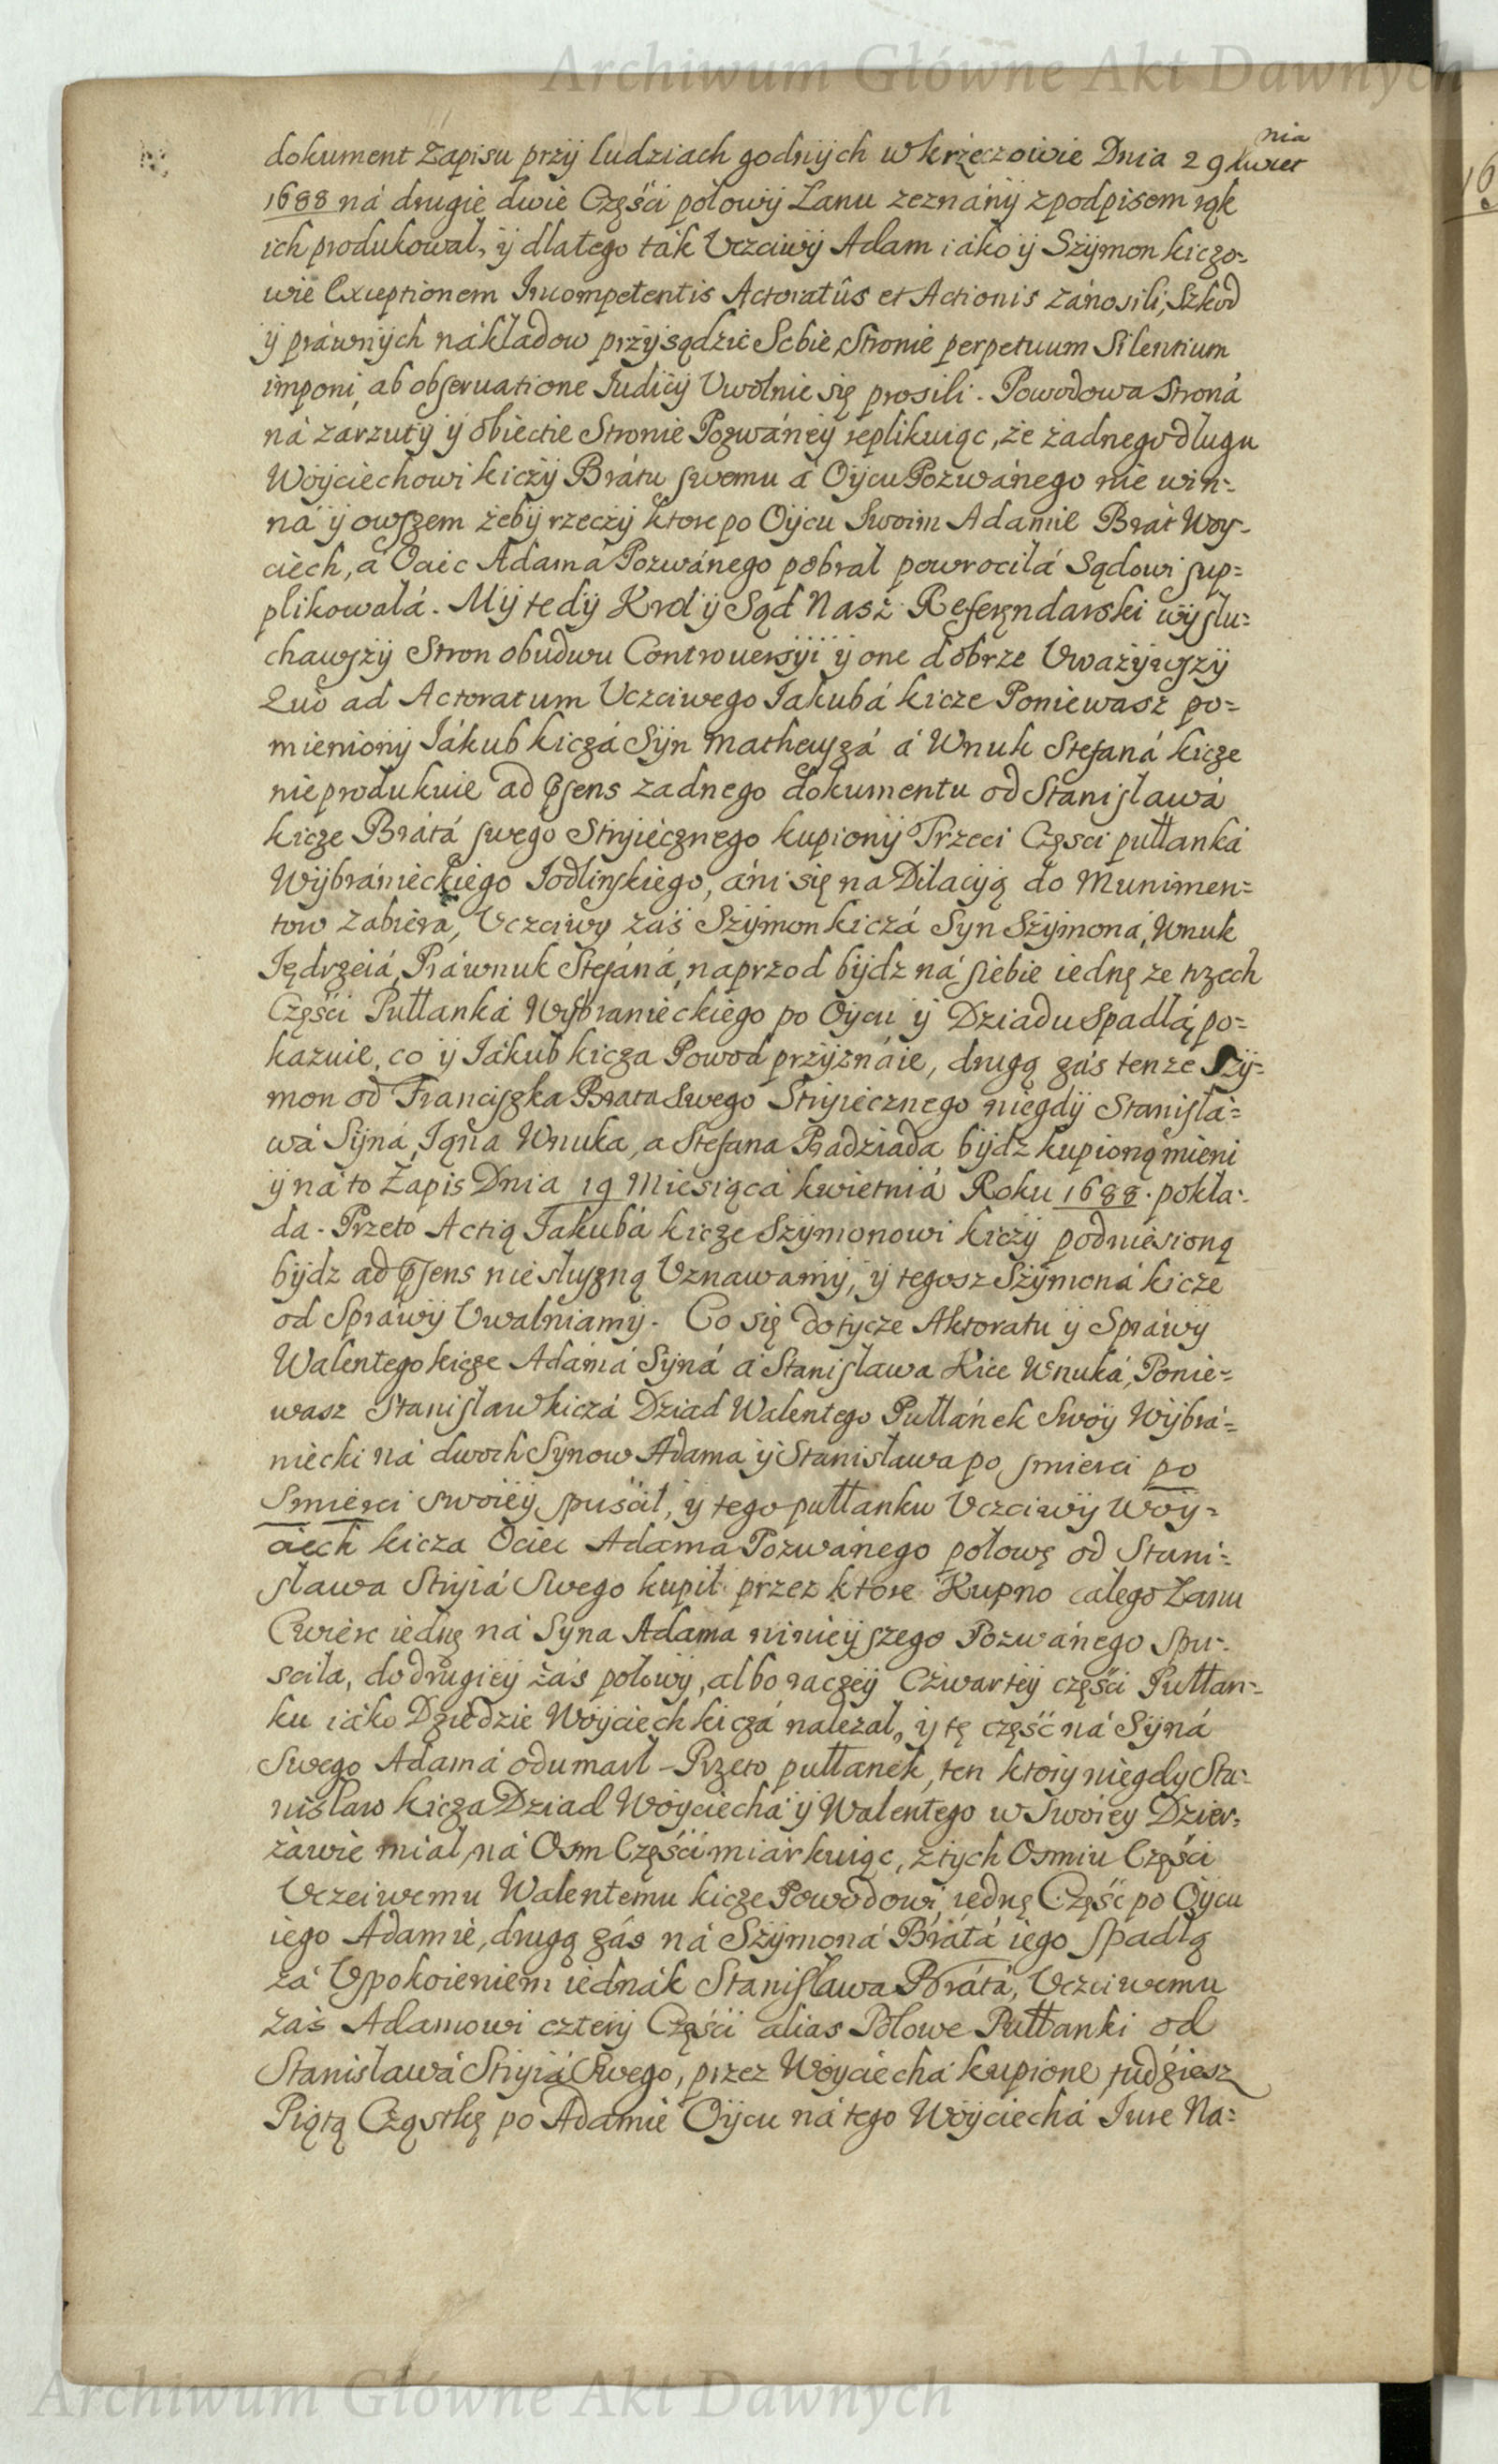 Archiwum Główne Akt Dawnych
dokument Zapisu przÿ ludziach godnÿch w krzeczowie Dnia 29 kwiet
nia
1688 ná drugie dwie Części połowÿ Łanu zeznánÿ z podpisem rąk
ich produkował, ÿ dlatego ták Vczciwÿ Adam iáko ÿ Szÿmon kiczo-
wie Exceptionem Incompetentis Actoratûs et Actionis zánosili, Szkod
ÿ práwnÿch nákładow przÿsądzić Sobie, Stronie perpetuum Silentium
imponi, ab obseruatione Iudicÿ Vwolnić się prosili. Powodowa Stroná
ná zarzutÿ ÿ obiectie Stronie Pozwáneÿ replikuiąc, że żadnego długu
Woÿciechowi kiczÿ Brátu swemu á Oÿcu Pozwánego nie win-
ná ÿ owszem żebÿ rzeczÿ ktore po Oÿcu Swoim Adamie Brát Woy-
ciech, á Ociec Adama Pozwánego pobrał powrociłá Sądowi sup=
plikowałá. Mÿ tedÿ Krol ÿ Sąd Nasz Referendarski wÿsłu=
chawszÿ Stron obudwu Controuersÿi ÿ one dobrze Vważÿwszÿ
Quo ad Actoratum Vczciwego Iakubá kicze Poniewasz po=
mienionÿ Iákub kiczá Sÿn Matheuszá á Wnuk Stefaná kicze
nie produkuie ad p͞sens żadnego dokumentu od Stanisławá
kicze Brátá swego Strÿiecznego kupionÿ Trzeci Części pułłanká
Wÿbránieckiego Iodlinskiego, áni się na Dilacÿą do Munimen=
tow zabiera, Vczciwy záś Szÿmon kiczá Syn Szÿmoná, Wnuk
Iędrzeiá, Práwnuk Stefáná, naprzod bÿdz ná siebie iednę ze trzech
Części Pułłanká Wÿbranieckiego po Oÿcu ÿ Dziadu Spadłą po=
kazuie, co ÿ Iákub kicza Powod przÿznáie, drugą záś tenze Szÿ=
mon od Franciszka Brata Swego Strÿiecznego niegdÿ Stanisłá=
wá Sÿná, Iąna Wnuka, a Stefana Pradziada bÿdz kupioną mieni
ÿ ná to Zapis Dnia 19 Miesiącá kwietniá Roku 1688. pokła-
da. Przeto Actią Iakubá kicze Szÿmonowi kiczÿ podniesioną
bÿdz ad p͞sens niesłuszną Vznawamÿ, ÿ tegosz Szÿmoná kicze
od Spráwÿ Vwalniamÿ. Co się dotÿcze Aktoratu ÿ Spráwÿ
Walentego kicze Adámá Sÿná á Stanisława Kice Wnuká, Ponie=
wasz Stanisław kiczá Dziad Walentego Pułłánek Swoÿ Wÿbrá=
niecki ná dwoch Synow Adama ÿ Stanisława po smierci po
Smierci swoieÿ spuścił, ÿ tego pułłanku Vczciwÿ Woÿ=
ciech kicza Ociec Adama Pozwánego połowę od Stani=
sława Strÿiá Swego kupił przez ktore Kupno całego Łanu
Cwierc iednę ná Syna Adama ninieÿszego Pozwánego Spu-
sciła, do drugieÿ záś połowÿ, albo raczeÿ Czwarteÿ części Pułłan-
ku iáko Dziedzic Woÿciech kiczá należał, ÿ tę część ná Sÿná
Swego Adamá odumarł – Przeto pułłanek, ten ktorÿ niegdy Sta-
nisław kicza Dziad Woyciechá ÿ Walentego w Swoiey Dzier=
żawie miał, ná Osm Części miárkuiąc, z tych Osmiu Części
Vczciwemu Walentemu kicze Powodowi, iednę Część po Oÿcu
iego Adamie, drugą záś ná Szÿmoná Brátá iego spadłą
zá Vspokoieniem iednák Stanisława Brátá, Vczciwemu
záś Adamowi czterÿ Części alias Połowe Pułłanki od
Stanisławá Strÿiá Swego, przez Woÿciechá kupione, tudziesz
Piątą Cząstkę po Adamie Oÿcu ná tego Woÿciechá Iure Na=
Archiwum Główne Akt Dawnych